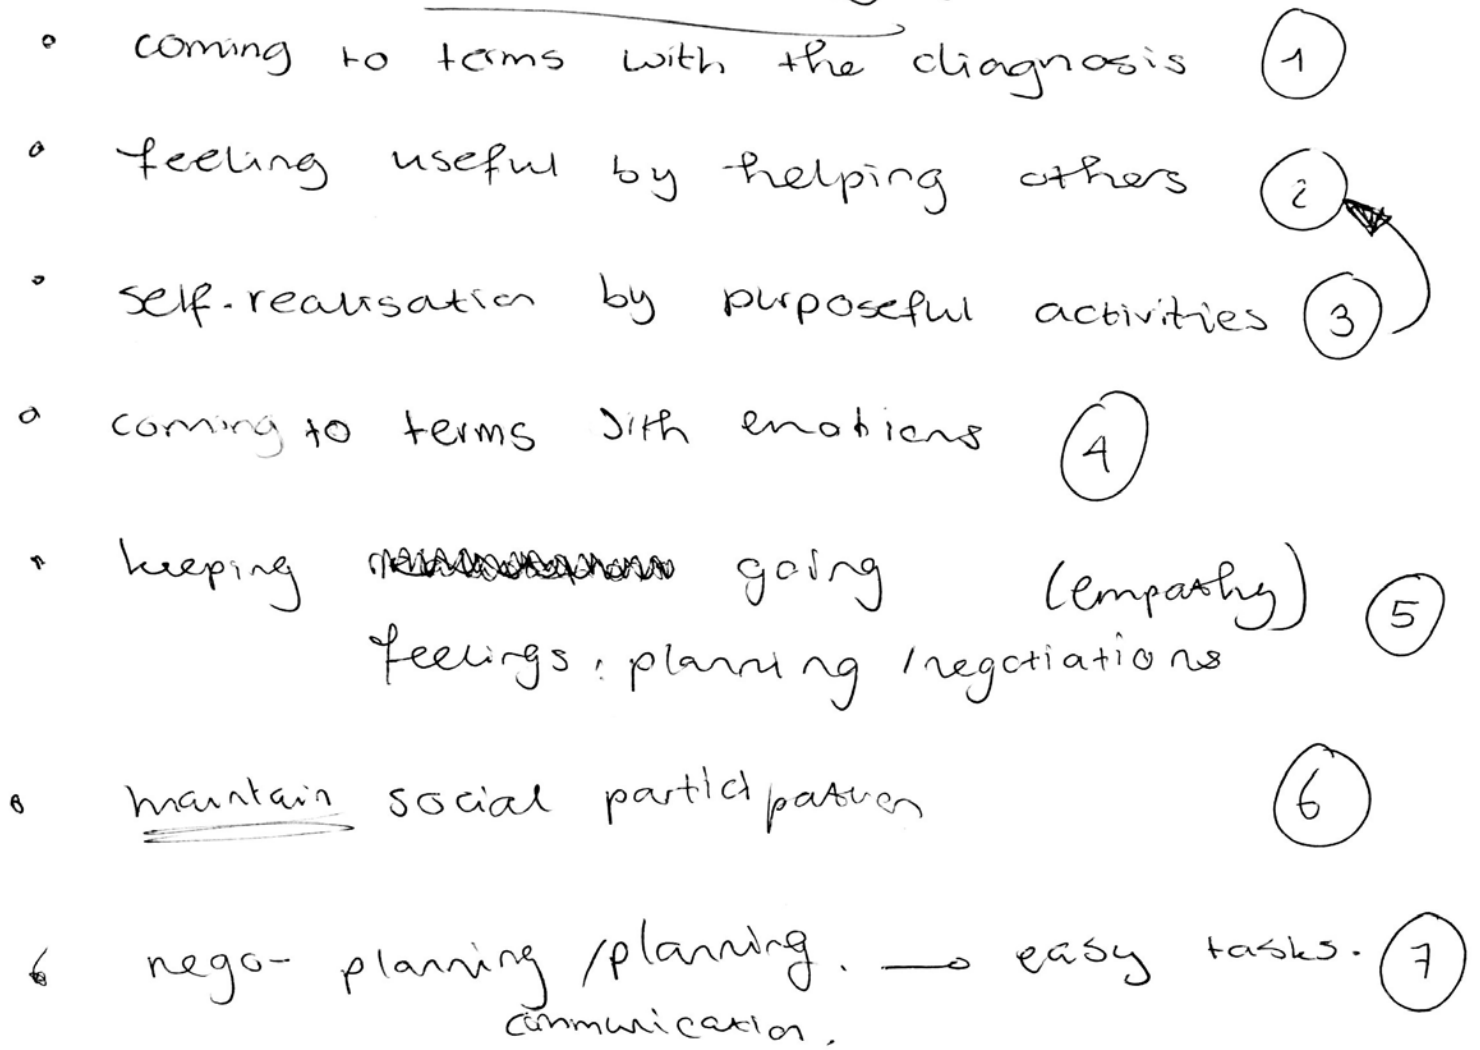 • coming to terms with the diagnosis 1
• feeling useful by helping others 2
• self-realisation by purposeful activities 3
• coming to terms with emotions 4
• keeping going (empathy) 5
feelings: planning / negotiations
• maintain social participation 6
• nego- planning / planning. → easy tasks. 7
communication.